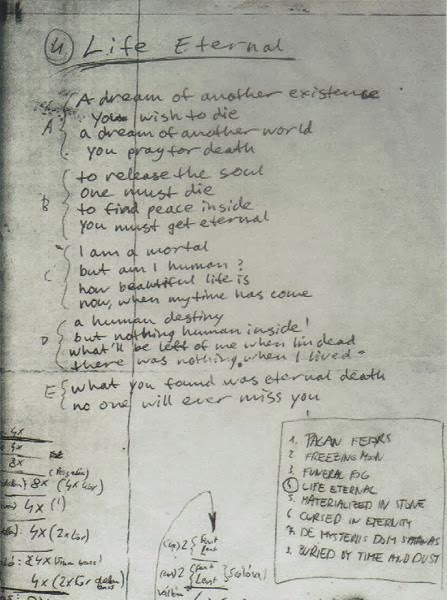 4 Life Eternal
A dream of another existence
you wish to die
A a dream of another world
you pray for death
to release the soul
one must die
B to find peace inside
you must get eternal
I am a mortal
but am I human?
C how beautiful life is
now, when my time has come
a human destiny
but nothing human inside!
D what'll be left of me when I'm dead
there was nothing when I lived.
E what you found was eternal death
no one will ever miss you
1. PAGAN FEARS
2 FREEZING MOON
3. FUNERAL FOG
4 LIFE ETERNAL
5. MATERIALIZED IN STONE
6 CURSED IN ETERNITY
7. DE MYSTERIIS DOM SATANAS
8. BURIED BY TIME AND DUST
4X
4X
8X
8X (4X
4X (1)
4X (2X
4X
4X (2X
2
2